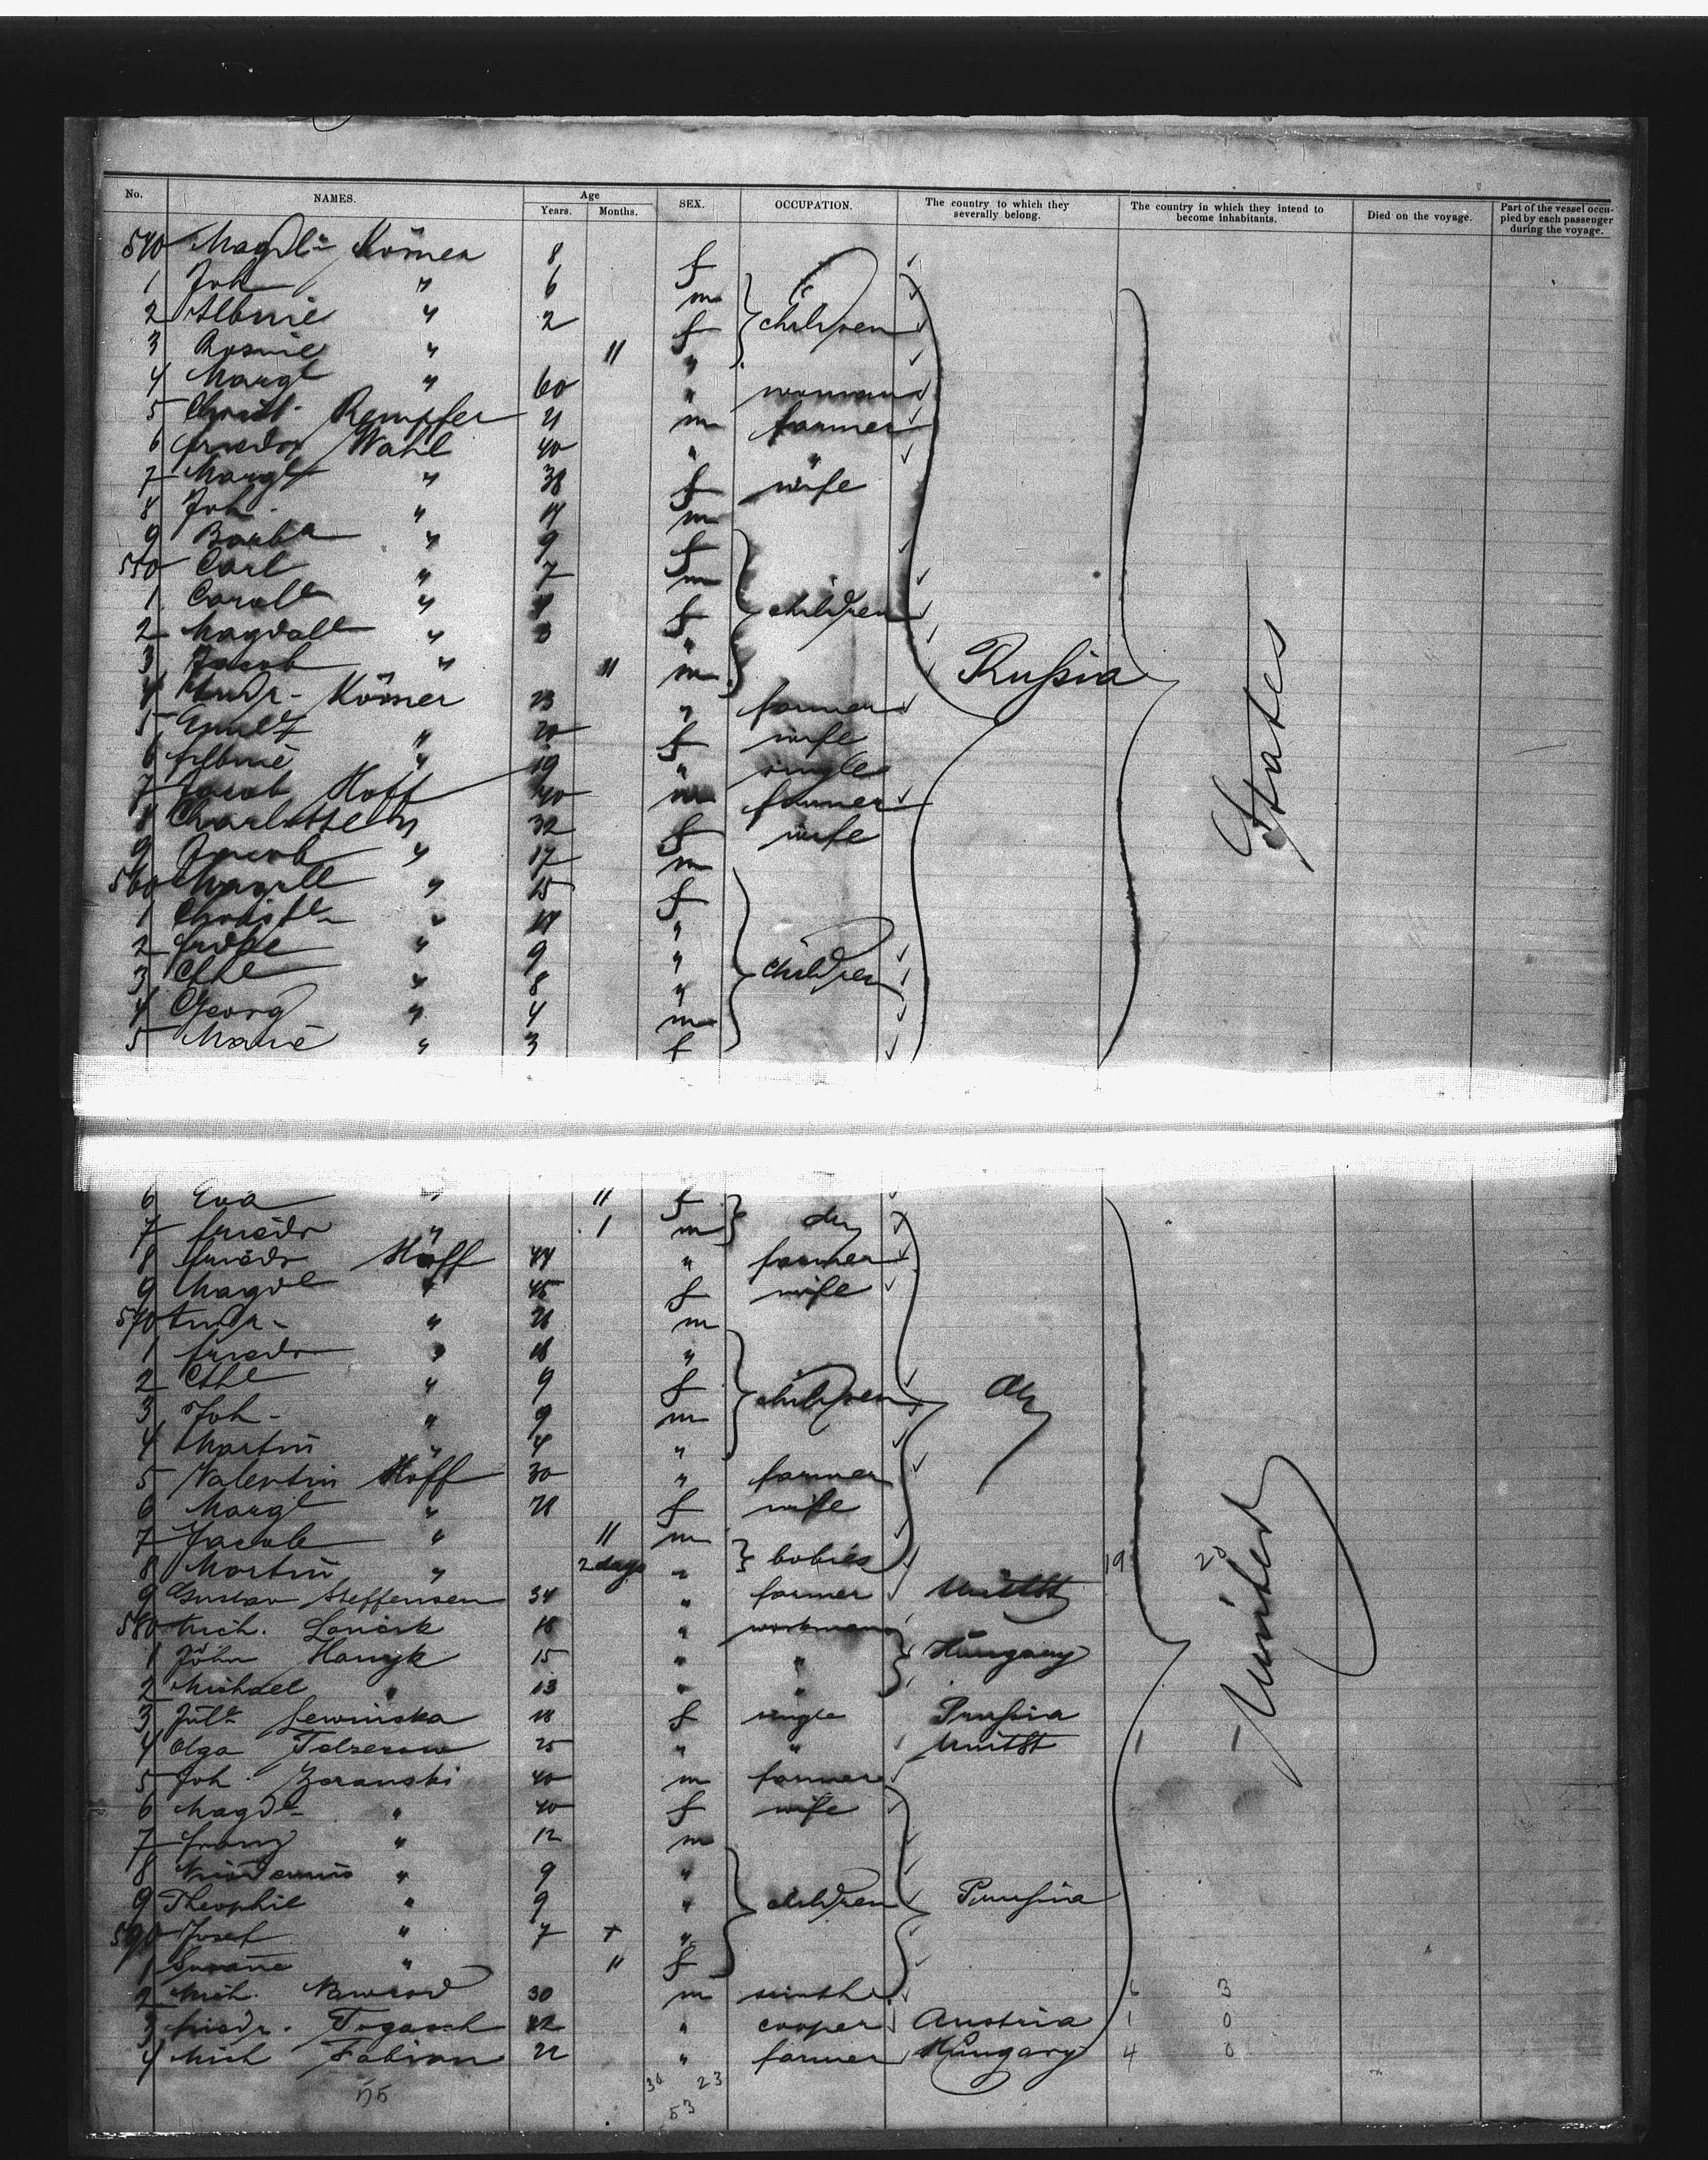 No. NAMES. Age Years. Months. SEX. OCCUPATION. The country to which they severally belong. The country in which they intend to become inhabitants. Died on the voyage. Part of the vessel occupied by each passenger during the voyage.
540 Magdl- Körner 8 f
1 Joh " 6 m
2 Albine " 2 f children
3 Rosine " 11 "
4 Margt " 60 " woman
5 Christ- Rempfer 21 m farmer
6 Friedr Wahl 40 " "
7 Margt " 38 f wife
8 Joh. " 14 m
9 Barba " 9 f
550 Carl " 7 m
1 Carole " f children
2 Magdale " 3 "
3 Jacob " 11 m Rußia
4 Andr- Körner 23 " farmer
5 " 20 f wife
6 Albine " 19 " single States
7 Jacob Hoff 40 m farmer
8 Charlotte " 32 f wife
9 Jacob " 17 m
560 Magdl " 15 f
1 Christe- " 14 "
2 " 9 "
3 Cthe " 8 " children
4 Georg " 4 m
5 Marie " 3 f
6 Eva " 11 f
7 Friedr " 1 m do
8 Friedr Hoff 44 " farmer
9 Magdl " 45 f wife
570 Andr- " 21 m
1 Friedr " 18 "
2 Cthe " 9 f children do
3 Joh- " 9 m
4 Martin " 4 "
5 Valentin Hoff 30 " farmer
6 Margt " 28 f wife
7 Jacob " 11 m
8 Martin " 2 days " babies 19 28
9 Gustav Steffensen 34 " farmer UnitSt
580 Mich. 18 " workman United
1 John 15 " " Hungary
2 Michael " 13 " "
3 Jule- Lewinska 18 f single Prußia
4 Olga 25 " " UnitSt 1 1
5 Joh. Zeranski 40 m farmer
6 Magdl- " 40 f wife
7 Franz " 12 m
8 " 9 "
9 Theophil " 9 " children Prußia
590 Josef " 7 + "
1 " 11 f
2 Mich. Nawrod 30 m smith 6 3
3 Friedr. Togasch 42 " cooper Austria 1 0
4 Mich Fabian 22 " farmer Hungary 4 0
55 30 23
53